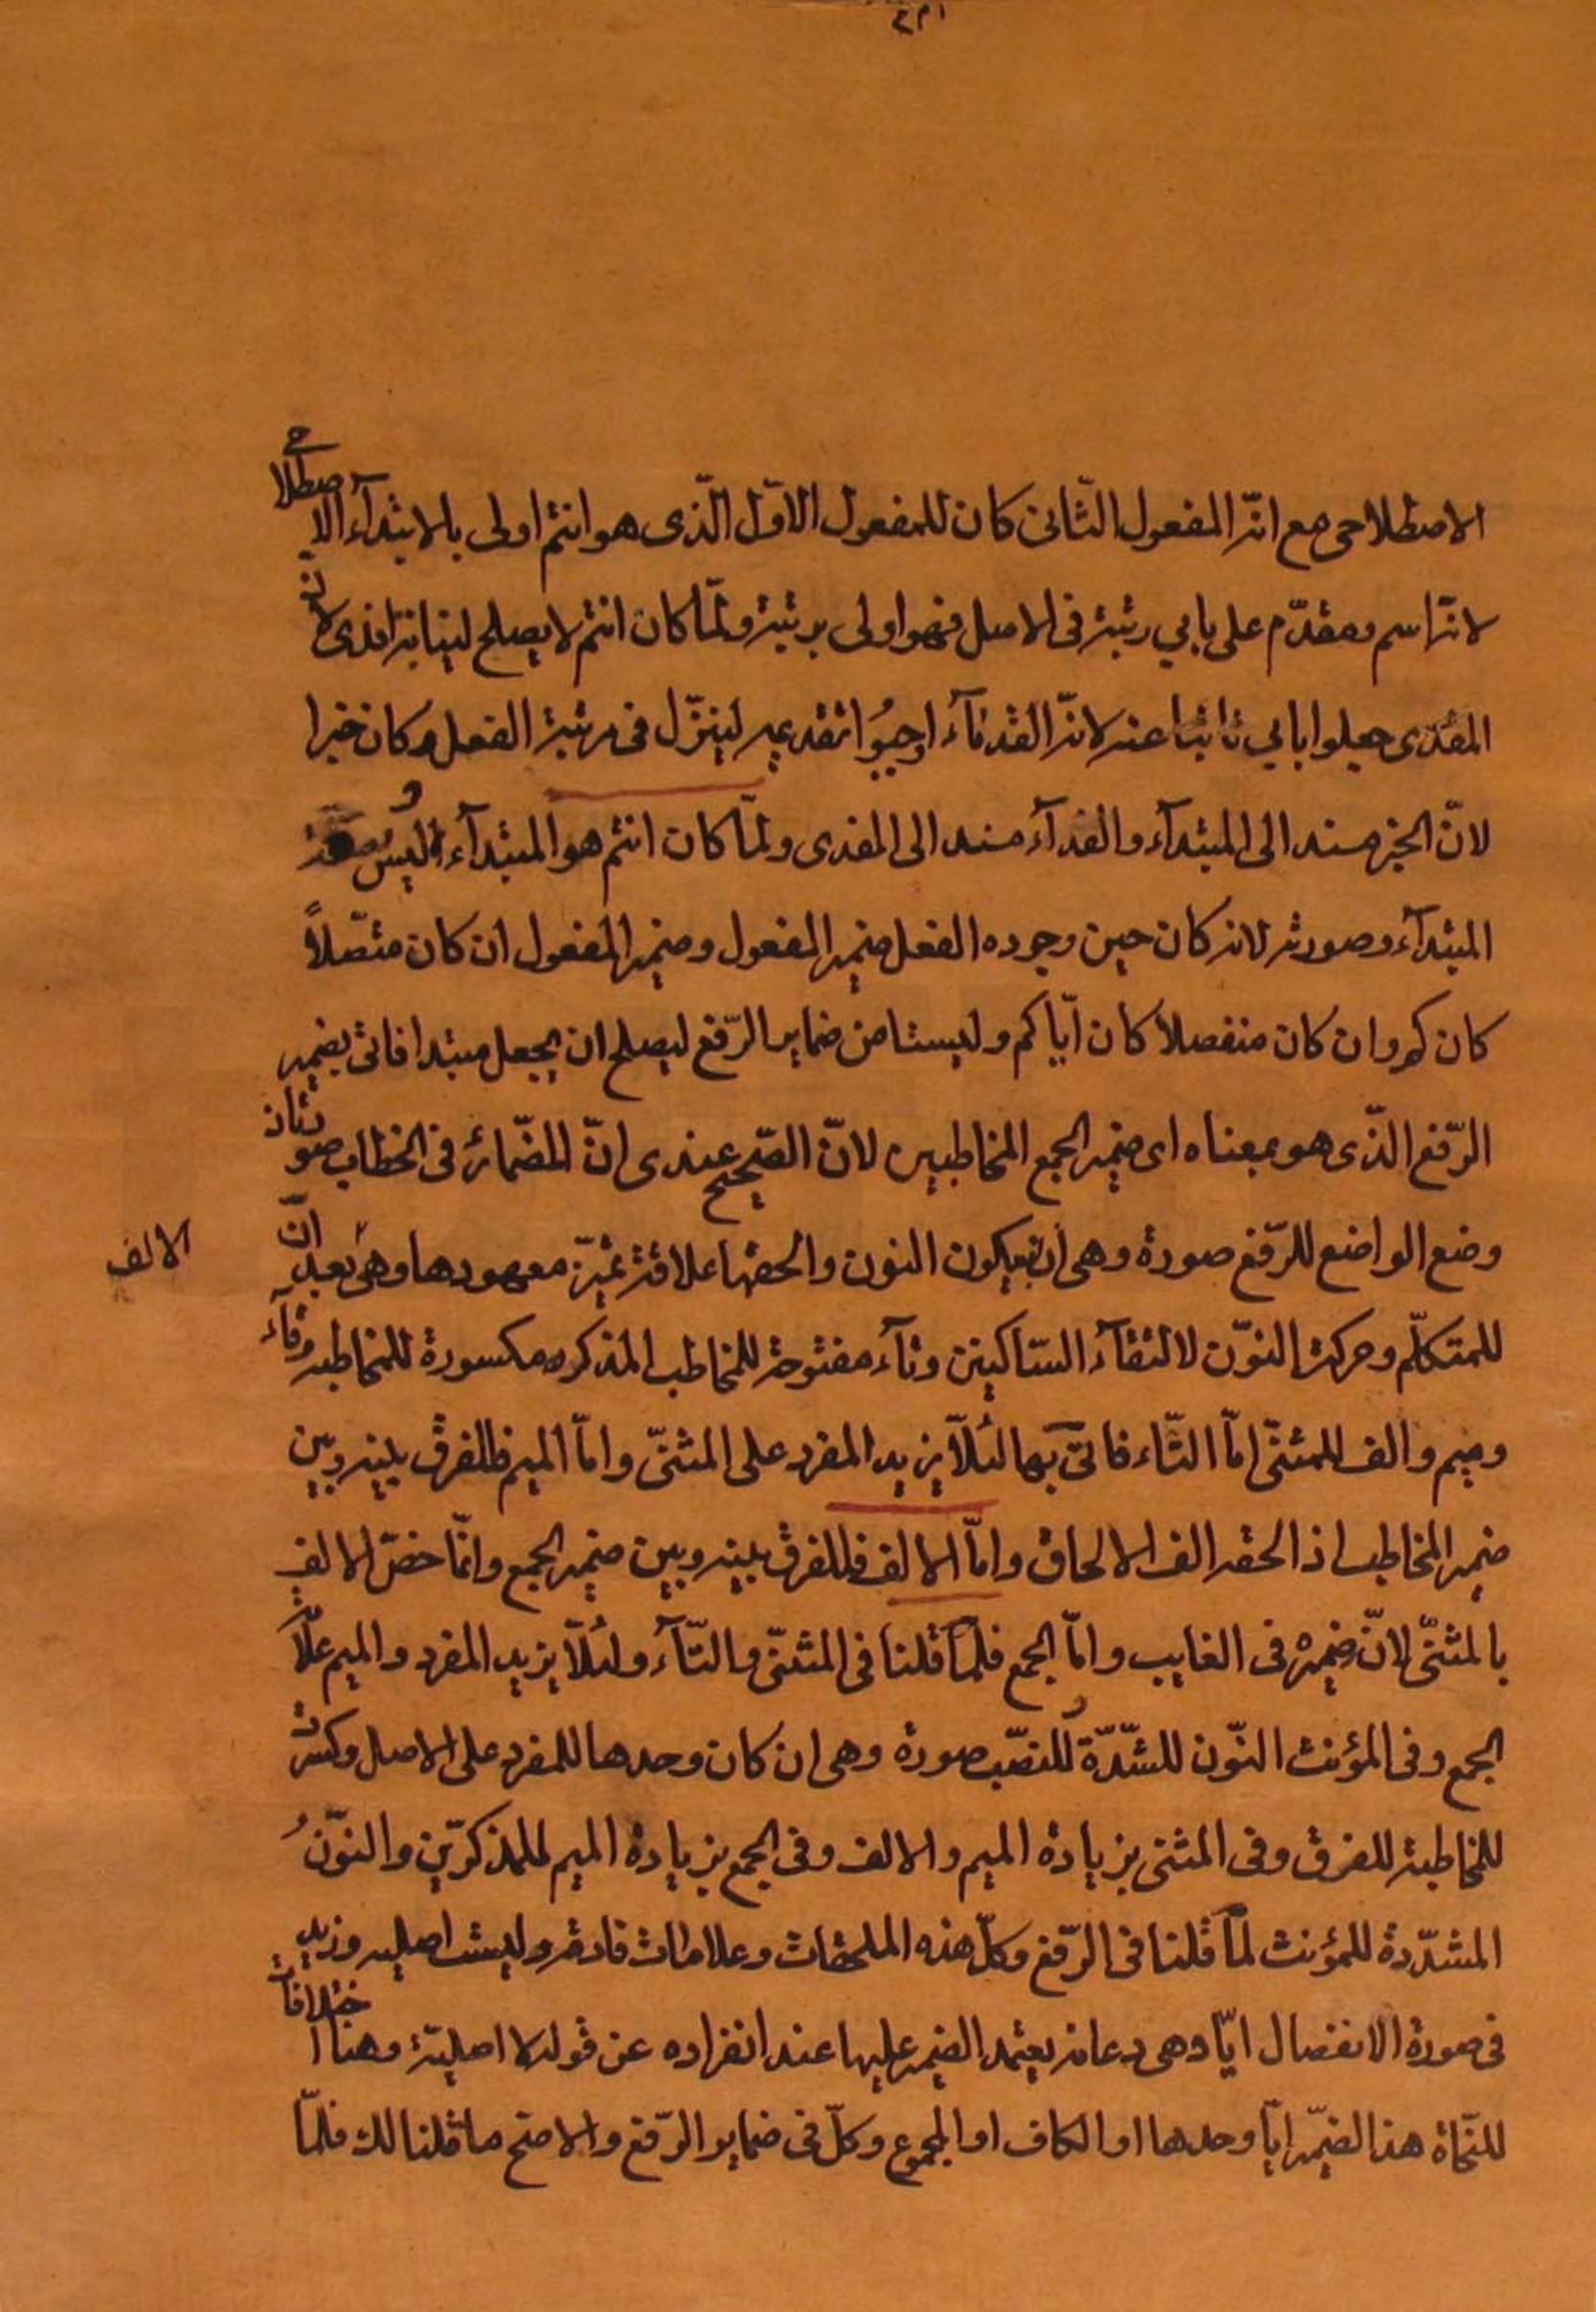 الاصطلاحى مع انّ المفعول الثّانى كان للمفعول الاوّل الّذى هو انتم اولى بالابتدآء الاصطلاحى
لانّه اسم ومقدّم على بابي رتبة فى الاصل فهو اولى برتبة ولمّا كان انتم لا يصلح لنيابة افدى لانّه
المفدى جعلوا بابي نائبا عنه لانّ القدمآء اوجبوا تقديمه لينزّل فى مرتبة الفعل وكان خبرا
لانّ الخبر مسند الى المبتدآء والفدآء مسند الى المفدى ولمّا كان انتم هو المبتدآء اُلبس
المبتدآء وصورته لانه كان حين وجوده الفعل ضمير المفعول وضمير المفعول ان كان متّصلاً
كان كم وان كان منفصلا كان ايّاكم وليستا من ضماير الرّفع ليصلح ان يجعل مبتدا فاتى بضمير
الرّفع الّذى هو بمعناه اى ضمير الجمع المخاطبين لانّ الصّحيح عندى انّ الضّمائر فى الخطاب صورتان
وضع الواضع للرّفع صورة وهى ان بسكون النون والحقها علامة تميّز معهودها وهى بعد انّ الالف
للمتكلّم وحركت النوّن لالتقآء السّاكنين وتآء مفتوحة للمخاطب المذكر ومكسورة للمخاطبة وتآء
وميم والف للمثنّى امّا التّاء فاتى بها لئلّا يزيد المفرد على المثنّى وامّا الميم فللفرق بينه وبين
ضمير المخاطب اذا لحقه الف الالحاق وامّا الالف فللفرق بينه وبين ضمير الجمع وانّما خصّ الالف
بالمثنّى لانّ ضميره فى الغايب وامّا الجمع فلما قلنا فى المثنّى والتّآء ولئلّا يزيد المفرد والميم علامة
الجمع وفى المؤنث النّون للشّدّة وللنصّب صورة وهى ان كان وحدها للمفرد على الاصل وكسرت
للمخاطبة للفرق وفى المثنى بزيادة الميم والالف وفى الجمع بزيادة الميم للمذكرّين والنوّن
المشدّدة للمؤنث لما قلنا فى الرّفع وكلّ هذه الملحقات وعلامات فارقة وليست اصليه وزيد
فى صورة الانفصال ايّا وهى دعامة يعتمد الضمير عليها عند انفراده عن قوله لا اصلية وهنا اختلافات
للنّحاة هذا الضّمير ايّا وحدها او الكاف او المجموع وكلّ فى ضماير الرّفع والاصح ما قلنا لك فلمّا